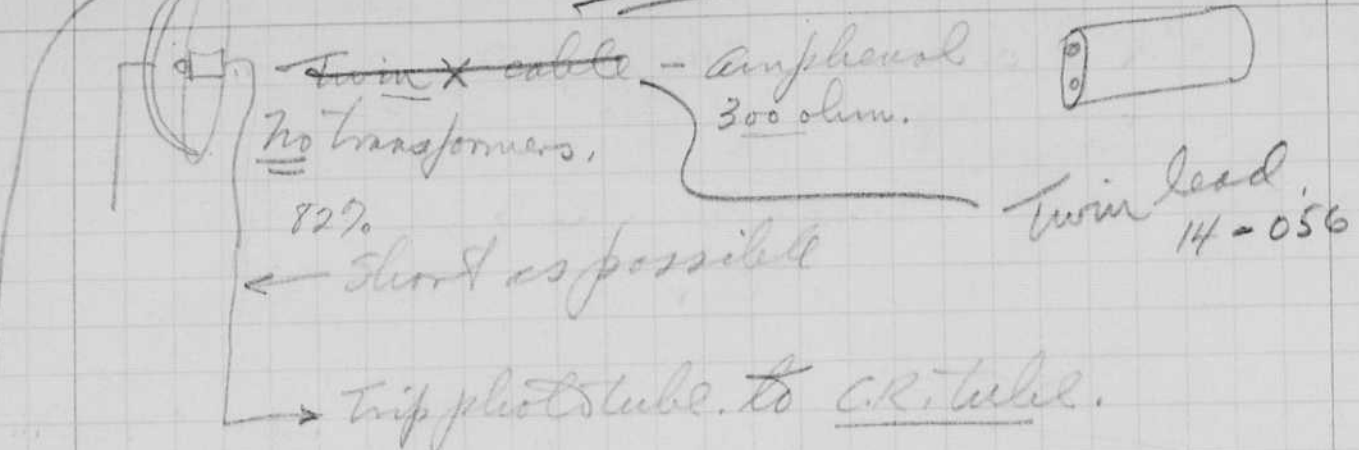 Twin X cable - Amphenol
300 ohm.
No transformers.
Twin lead.
14-056
82%
← Short as possible
→ Trip phototube. to C.R. tube.